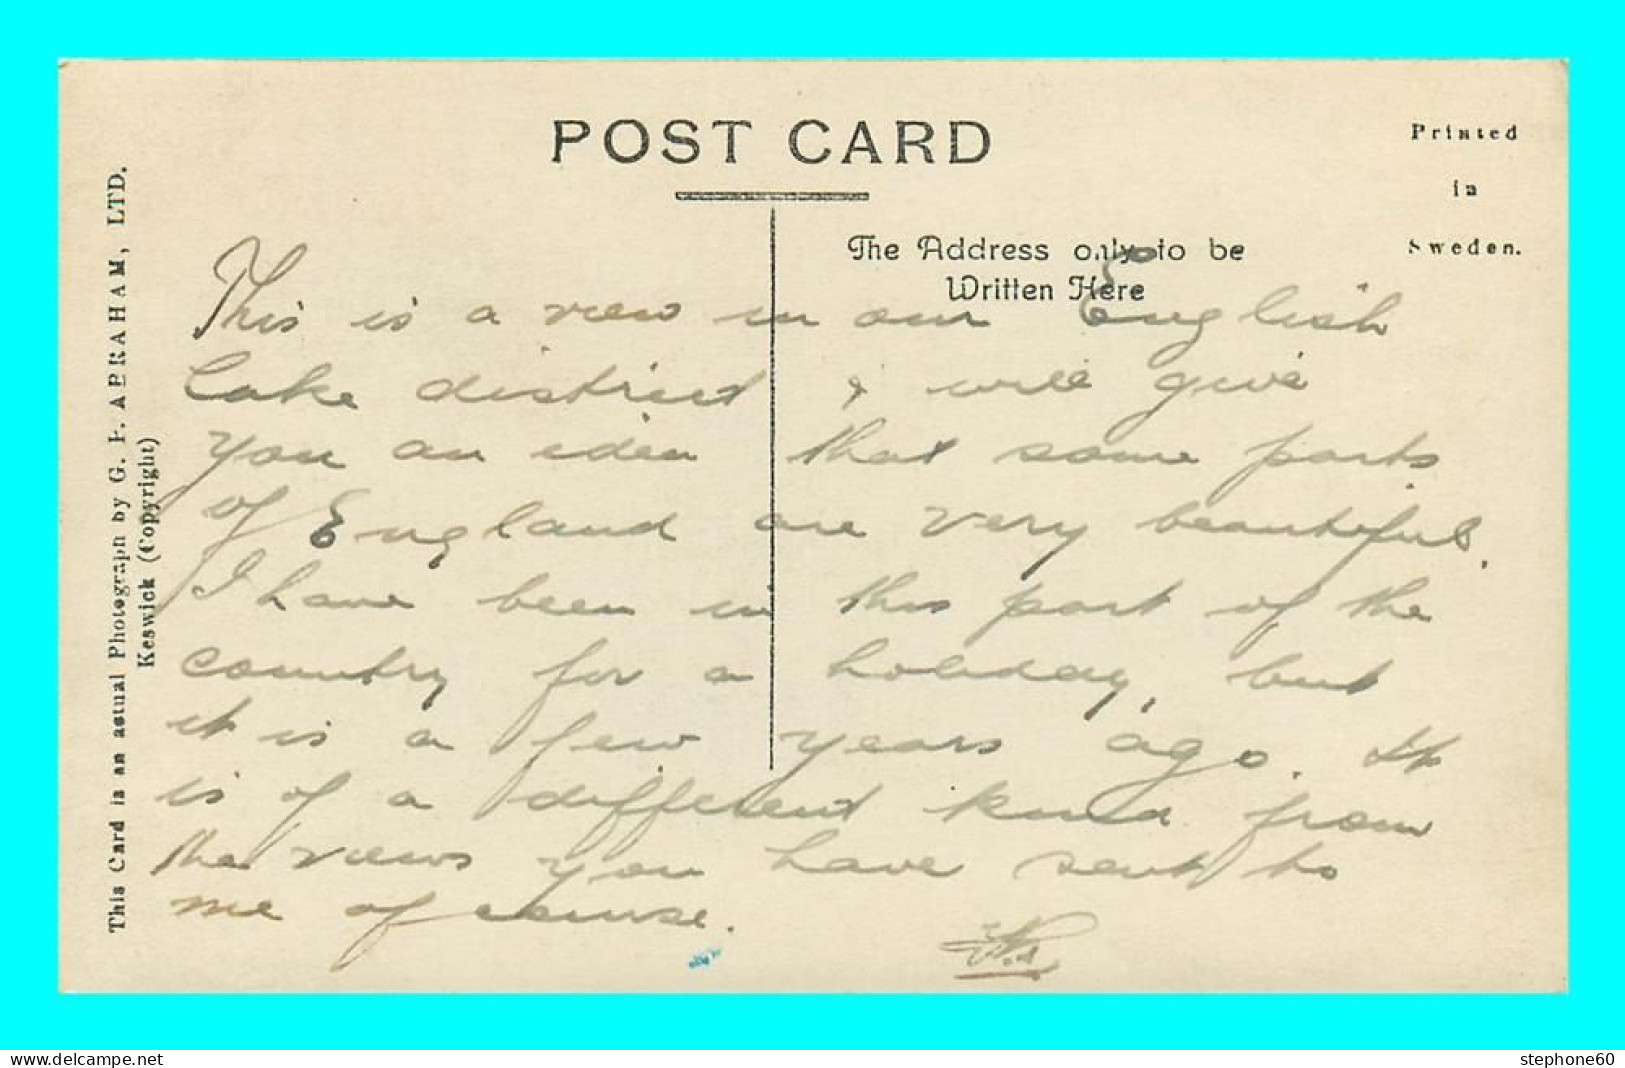 POST CARD
Printed
in
Sweden.
The Address only to be
Written Here
This Card is an actual Photograph by G. P. ABRAHAM, LTD.
Keswick (Copyright)
This is a view in our English
Lake district & will give
you an idea that some parts
of England are very beautiful.
I have been in this part of the
country for a holiday, but
it is a few years ago. It
is of a different kind from
the views you have sent to
me of course.
www.delcampe.net
stephone60